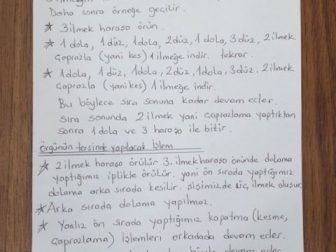 Daha sonra örneğe geçilir.
* 3 ilmek haraşo örün.
* 1 dola, 1 düz, 1 dola, 2 düz, 1 dola, 3 düz, 2 ilmek
çaprazla (yani kes) 1 ilmeğe indir. tekrar.
* 1 dola, 1 düz, 1 dola, 2 düz, 1 dola, 3 düz, 2 ilmek
Çaprazla (yani kes) 1 ilmeğe indir.
Bu böylece sıra sonuna kadar devam eder.
sıra sonunda 2 ilmek yani çaprazlama yaptıktan
sonra 1 dola ve 3 haraşo ile bitir.
Örgünün tersinde yapılacak işlem
* 2 ilmek haraşo örülür 3. ilmek haraşo önünde dolama
yaptığımız iplikle örülür. yani ön sırada yaptığımız
dolama arka sırada kesilir. şişimizde üç ilmek olur.
* Arka sırada dolama yapılmaz.
* Yanlız ön sırada yaptığımız kapatma (kesme,
çaprazlama) işlemleri arkadada devam eder.
böyle devam eder.